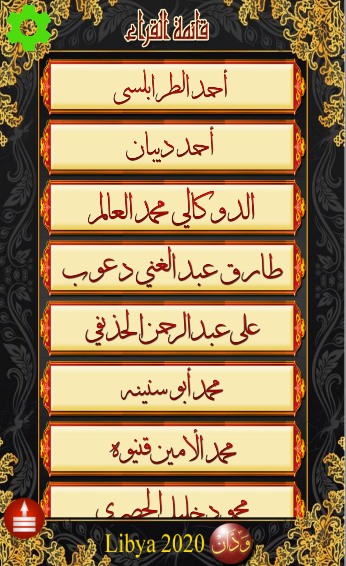 قائمة القراء
أحمد الطرابلسى
أحمد ديبان
الدوكالي محمد العالم
طارق عبد الغني دعوب
على عبد الرحمن الحذيفي
محمد أبو سنينه
محمد الأمين قنيوه
محمود خليل الحصري
Libya 2020 وَدَّان